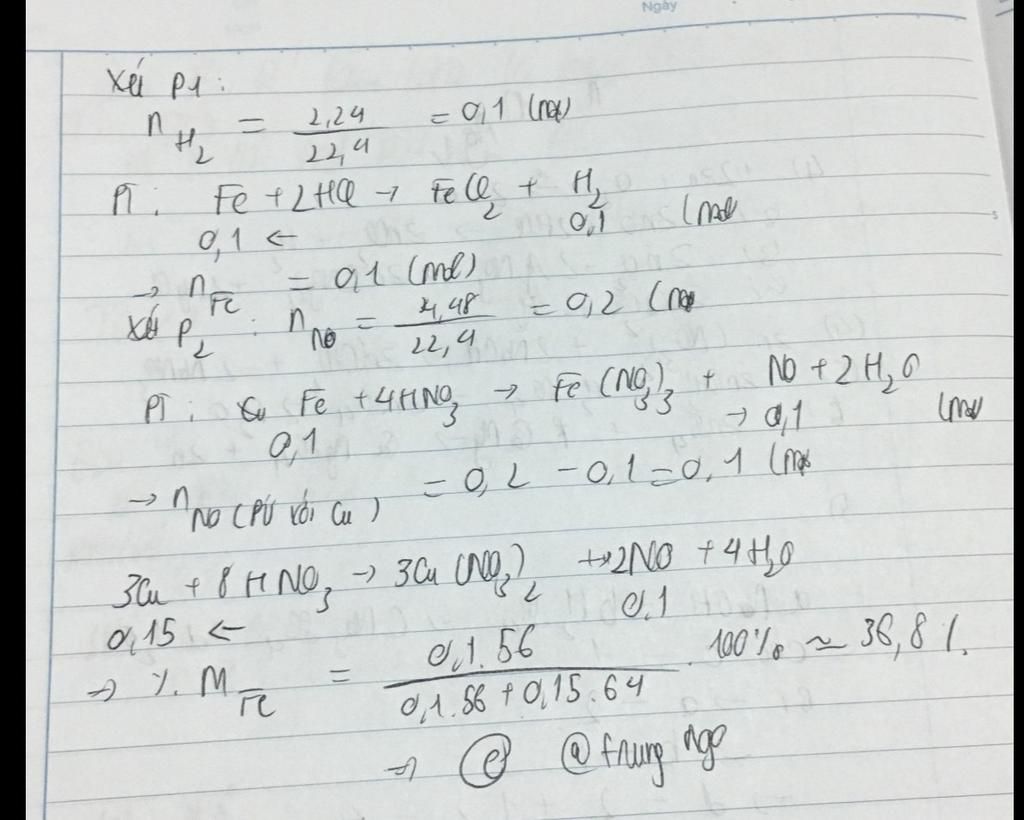 Ngày
Xét P1:
n H₂ = 2,24 / 22,4 = 0,1 (mol)
PT: Fe + 2HCl → FeCl₂ + H₂
0,1 ← 0,1 (mol
→ n Fe = 0,1 (mol)
Xét P₂: n NO = 4,48 / 22,4 = 0,2 (mol
PT: Fe + 4HNO₃ → Fe(NO₃)₃ + NO + 2H₂O
0,1 → 0,1 (mol
→ n NO (PƯ với Cu) = 0,2 - 0,1 = 0,1 (mol
3Cu + 8HNO₃ → 3Cu(NO₃)₂ + 2NO + 4H₂O
0,15 ← 0,1
→ %m Fe = 0,1.56 / 0,1.56 + 0,15.64 . 100% ≈ 36,8%.
→ C @trung ngo